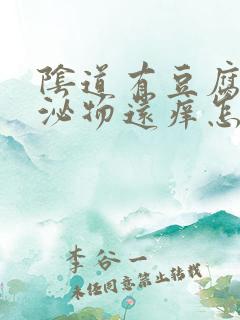 陰道有豆腐
泌物還痒怎
李谷一
未经同意禁止转载